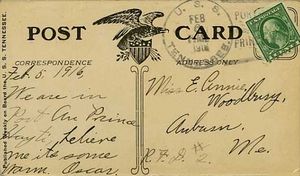 POST CARD
CORRESPONDENCE
ADDRESS ONLY
Published Weekly on Board the U. S. S. TENNESSEE.
U. S. S.
FEB
1916
Feb. 5, 1916,
We are in
Port Au Prince
Hayti, believe
me its some
warm. Oscar.
Miss E. Annie
Woodbury,
Auburn,
Me.
R.F.D. #2